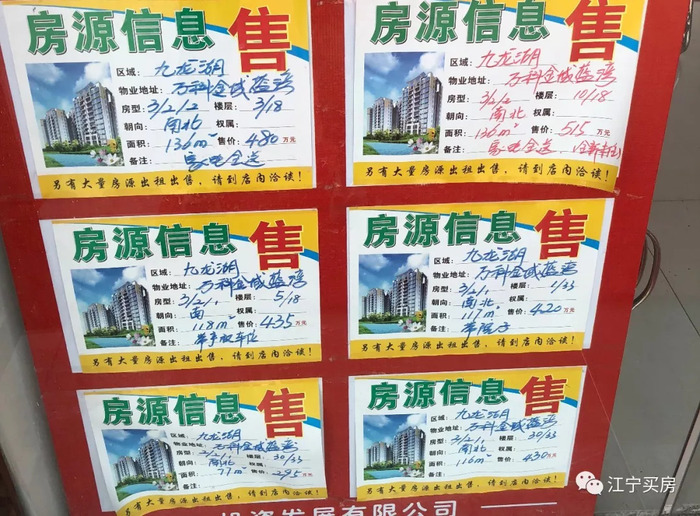 房源信息 售
区域: 九龙湖
物业地址: 万科金域蓝湾
房型: 3/2/2 楼层: 3/18
朝向: 南北 权属:
面积: 136m² 售价: 480 万元
备注: 家电全送
另有大量房源出租出售,请到店内洽谈!
房源信息 售
区域: 九龙湖
物业地址: 万科金域蓝湾
房型: 3/2/2 楼层: 10/18
朝向: 南北 权属:
面积: 136m² 售价: 515 万元
备注: 家电全送
另有大量房源出租出售,请到店内洽谈!
房源信息 售
区域: 九龙湖
物业地址: 万科金域蓝湾
房型: 3/2/1 楼层: 5/18
朝向: 南 权属:
面积: 118m² 售价: 435 万元
备注: 带产权车位
另有大量房源出租出售,请到店内洽谈!
房源信息 售
区域: 九龙湖
物业地址: 万科金域蓝湾
房型: 3/2/1 楼层: 1/33
朝向: 南北 权属:
面积: 117m² 售价: 420 万元
备注: 带院子
另有大量房源出租出售,请到店内洽谈!
房源信息 售
区域: 九龙湖
物业地址: 万科金域蓝湾
房型: 2/2/1 楼层: 30/33
朝向: 南北 权属:
面积: 77m² 售价: 295 万元
备注:
另有大量房源出租出售,请到店内洽谈!
房源信息 售
区域: 九龙湖
物业地址: 万科金域蓝湾
房型: 3/2/1 楼层: 30/33
朝向: 南北 权属:
面积: 116m² 售价: 430 万元
备注:
另有大量房源出租出售,请到店内洽谈!
投资发展有限公司
江宁买房